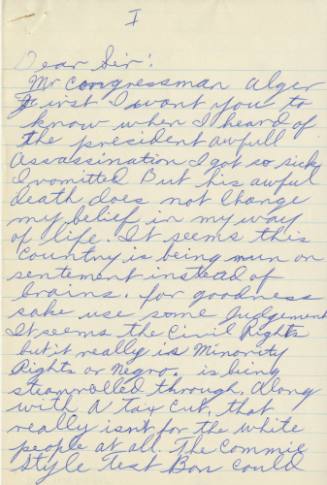 I
Dear Sir:
Mr Congressman Alger
First I want you to
know when I heard of
the president awfull
assassination I got so sick
I vomitted But his awful
death does not Change
my belief in my way
of life. It seems this
Country is being mun on
sentement instead of
brains. for goodness
sake use some Judgement
It seems the Civil Rights
but it really is Minority
Rights or Negro. is being
steamrolled through. Along
with A tax cut, that
really isnt for the white
people at all. The Commie
style Test Ban could